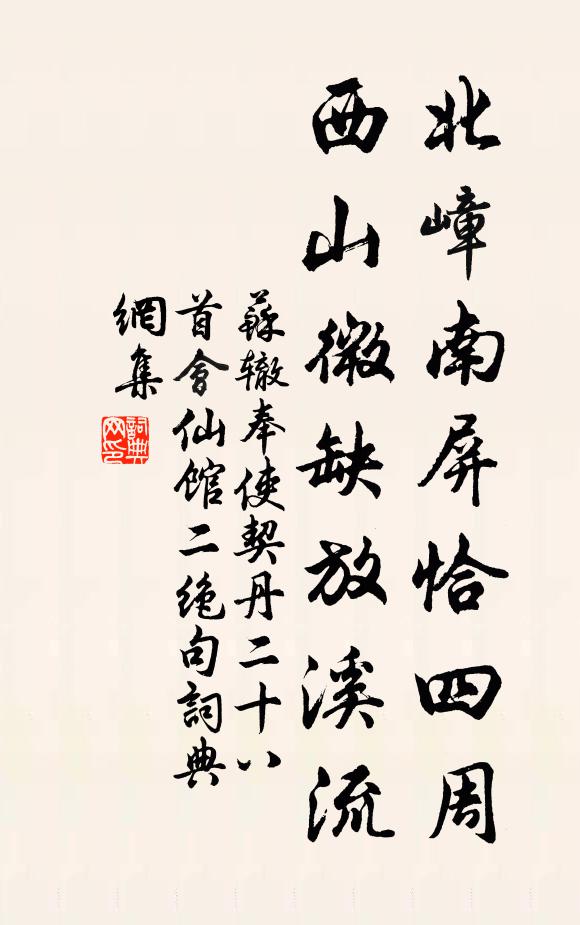 北嶂南屏恰四周
西山微缺放溪流
蘇辙奉使契丹二十八
首會仙馆二绝句詞典
網集
詞典
网印